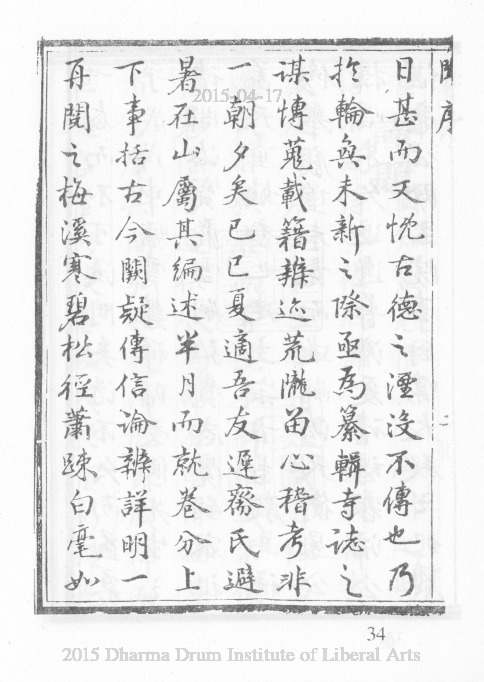 序
日甚而又忱古德之湮沒不傳也乃
於輪奐未新之際亟為纂輯寺誌之
謀博蒐載籍辨迹荒隴留心稽考非
一朝夕矣己巳夏適吾友遲齋氏避
暑在山屬其編述半月而就卷分上
下事括古今闕疑傳信論辨詳明一
再閱之梅溪寒碧松徑蕭踈白毫如
二
2015-04-17
34
2015 Dharma Drum Institute of Liberal Arts